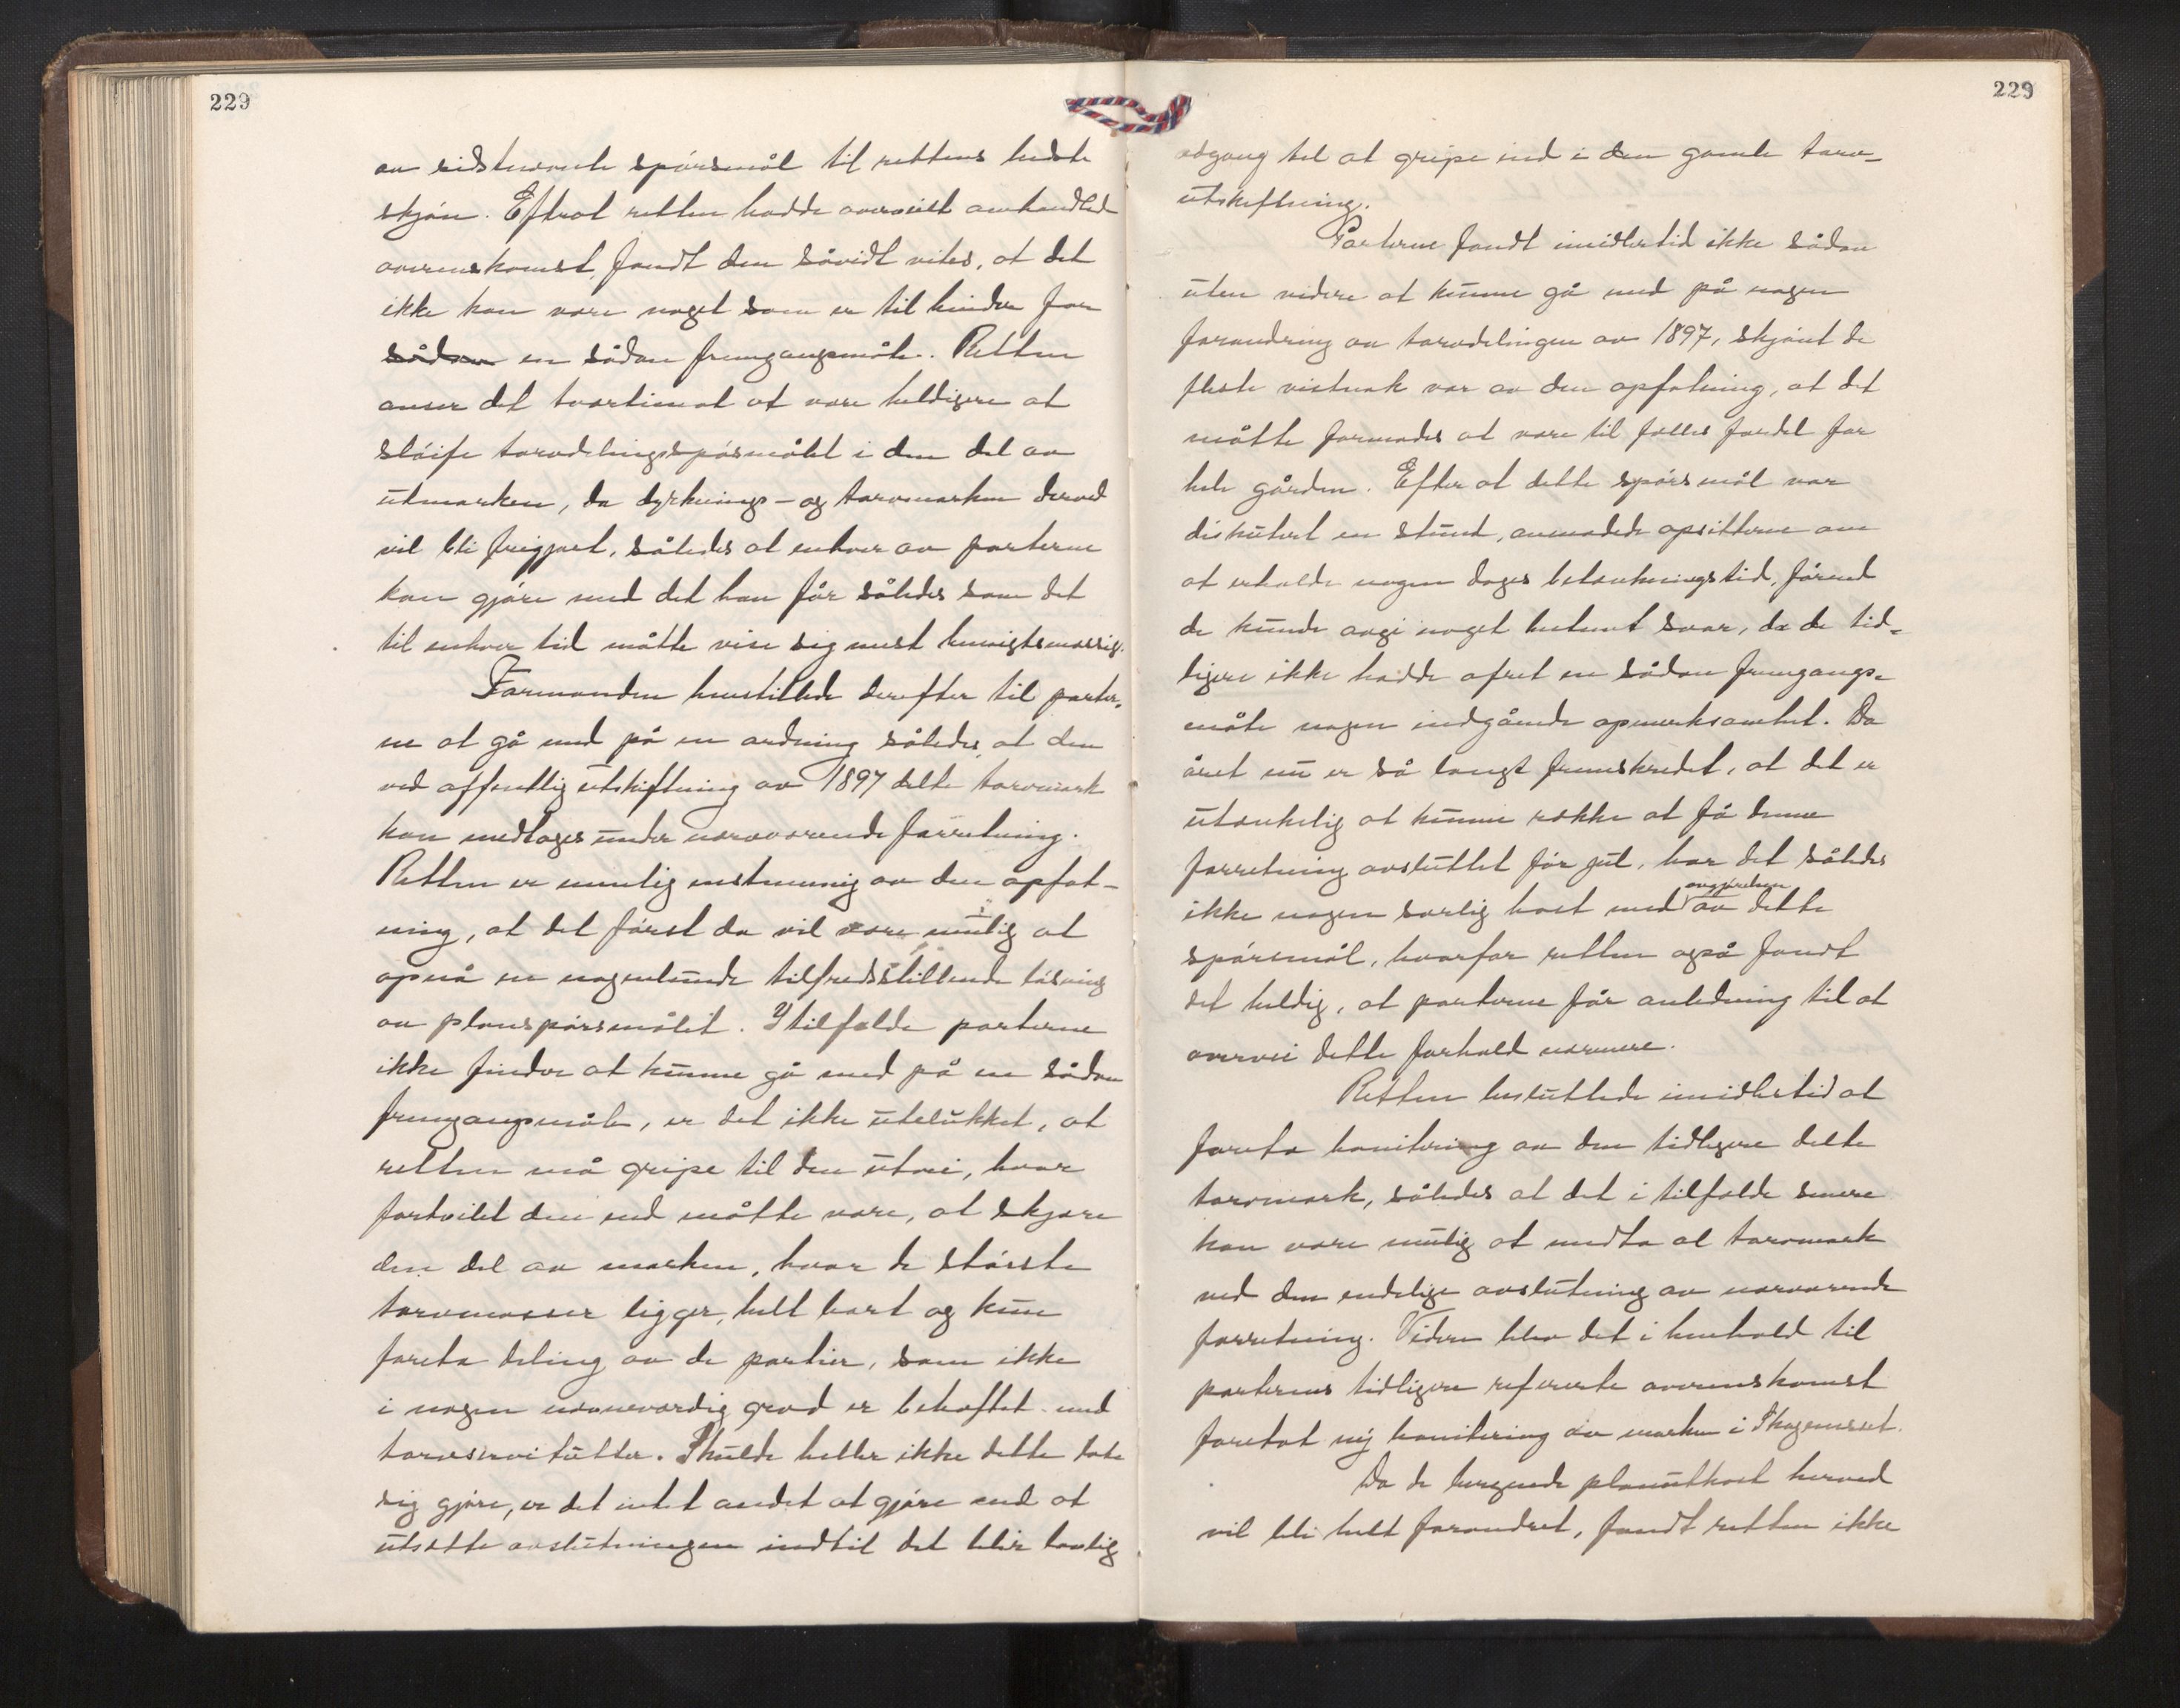 229
av sidstnævnte spörsmål til rettens bedste
skjön. Efterat retten hadde overveiet omhandlede
overenskomst, fandt den såvidt vites, at det
ikke kan være noget som er til hinder for
sådan en sådan fremgangsmåte. Retten
anser det tvertimot at være heldigere at
slöife torvdelingsspösmålet i den del av
utmarken, da dyrknings- og torvmarken derved
vil bli frigjort, således at enhver av parterne
kan gjöre med det han får således som det
til enhver tid måtte vise sig mest hensigtsmæssig.
Formanden henstillede derefter til parter-
ne at gå med på en ordning således, at den
ved offentlig utskiftning av 1897 delte torvmark
kan medtages under nærværende forretning.
Retten er nemlig enstemmig av den opfat-
ning, at det först da vil være mulig at
opnå en nogenlunde tilfredsstillende lösning
av planspörsmålet. I tilfælde parterne
ikke finder at kunne gå med på en sådan
fremgangsmåte, er det ikke utelukket, at
retten må gripe til den utvei, hvor
fortvilet den end måtte være, at skjære
den del av marken, hvor de störste
torvmasser ligger, helt bort og kun
foreta deling av de partier, som ikke
i nogen nævneværdig grad er beheftet med
torvservitutter. Skulde heller ikke dette late
sig gjöre, er det intet andet at gjöre end at
utsætte avslutningen indtil det blir lovlig
229
adgang til at gripe ind i den gamle torv-
utskiftning.
Parterne fandt imidlertid ikke sådan
uten videre at kunne gå med på nogen
forandring av torvdelingen av 1897, skjönt de
fleste vistnok var av den opfatning, at det
måtte formodes at være til fælles fordel for
hele gården. Efter at dette spörsmål var
diskutert en stund, anmodede opsitterne om
at erholde nogen dages betænkningstid, förend
de kunde avgi noget bestemt svar, da de tid-
ligere ikke hadde ofret en sådan fremgangs-
måte nogen indgående opmerksomhet. Da
året nu er så langt fremskredet, at det er
utænkelig at kunne række at få denne
forretning avsluttet för jul, har det således
ikke nogen særlig hast med avgjörelsen av dette
spörsmål, hvorfor retten også fandt
det heldig, at parterne får anledning til at
overvei dette forhold nærmere.
Retten besluttede imidlertid at
foreta bonitering av den tidligere delte
torvmark, således at det i tilfælde senere
kan være mulig at medta al torvmark
ved den endelige avslutning av nærværende
forretning. Videre blev det i henhold til
parternes tidligere refererte overenskomst
foretat ny bonitering av marken i Skogemset.
Da de beregnede planutkast herved
vil bli helt forandret, fandt retten ikke